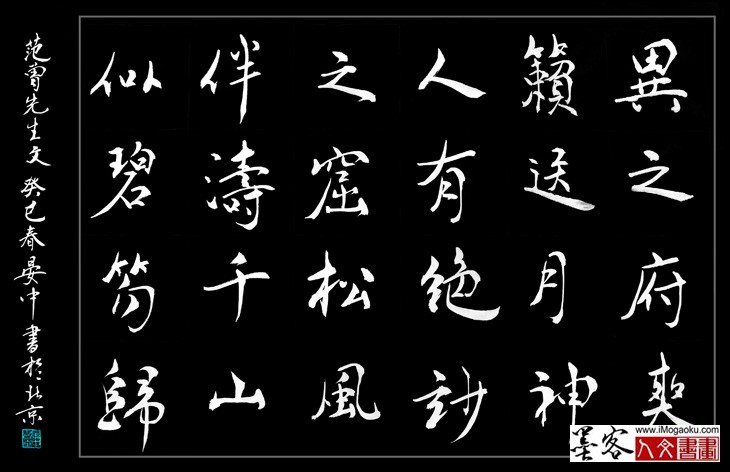 異之府爽
籟送月神
人有絕妙
之窟松風
伴濤千山
似碧笏歸
范曾先生文癸巳春晏中書於北京
www.iMogaoku.com
墨客
人文書畫